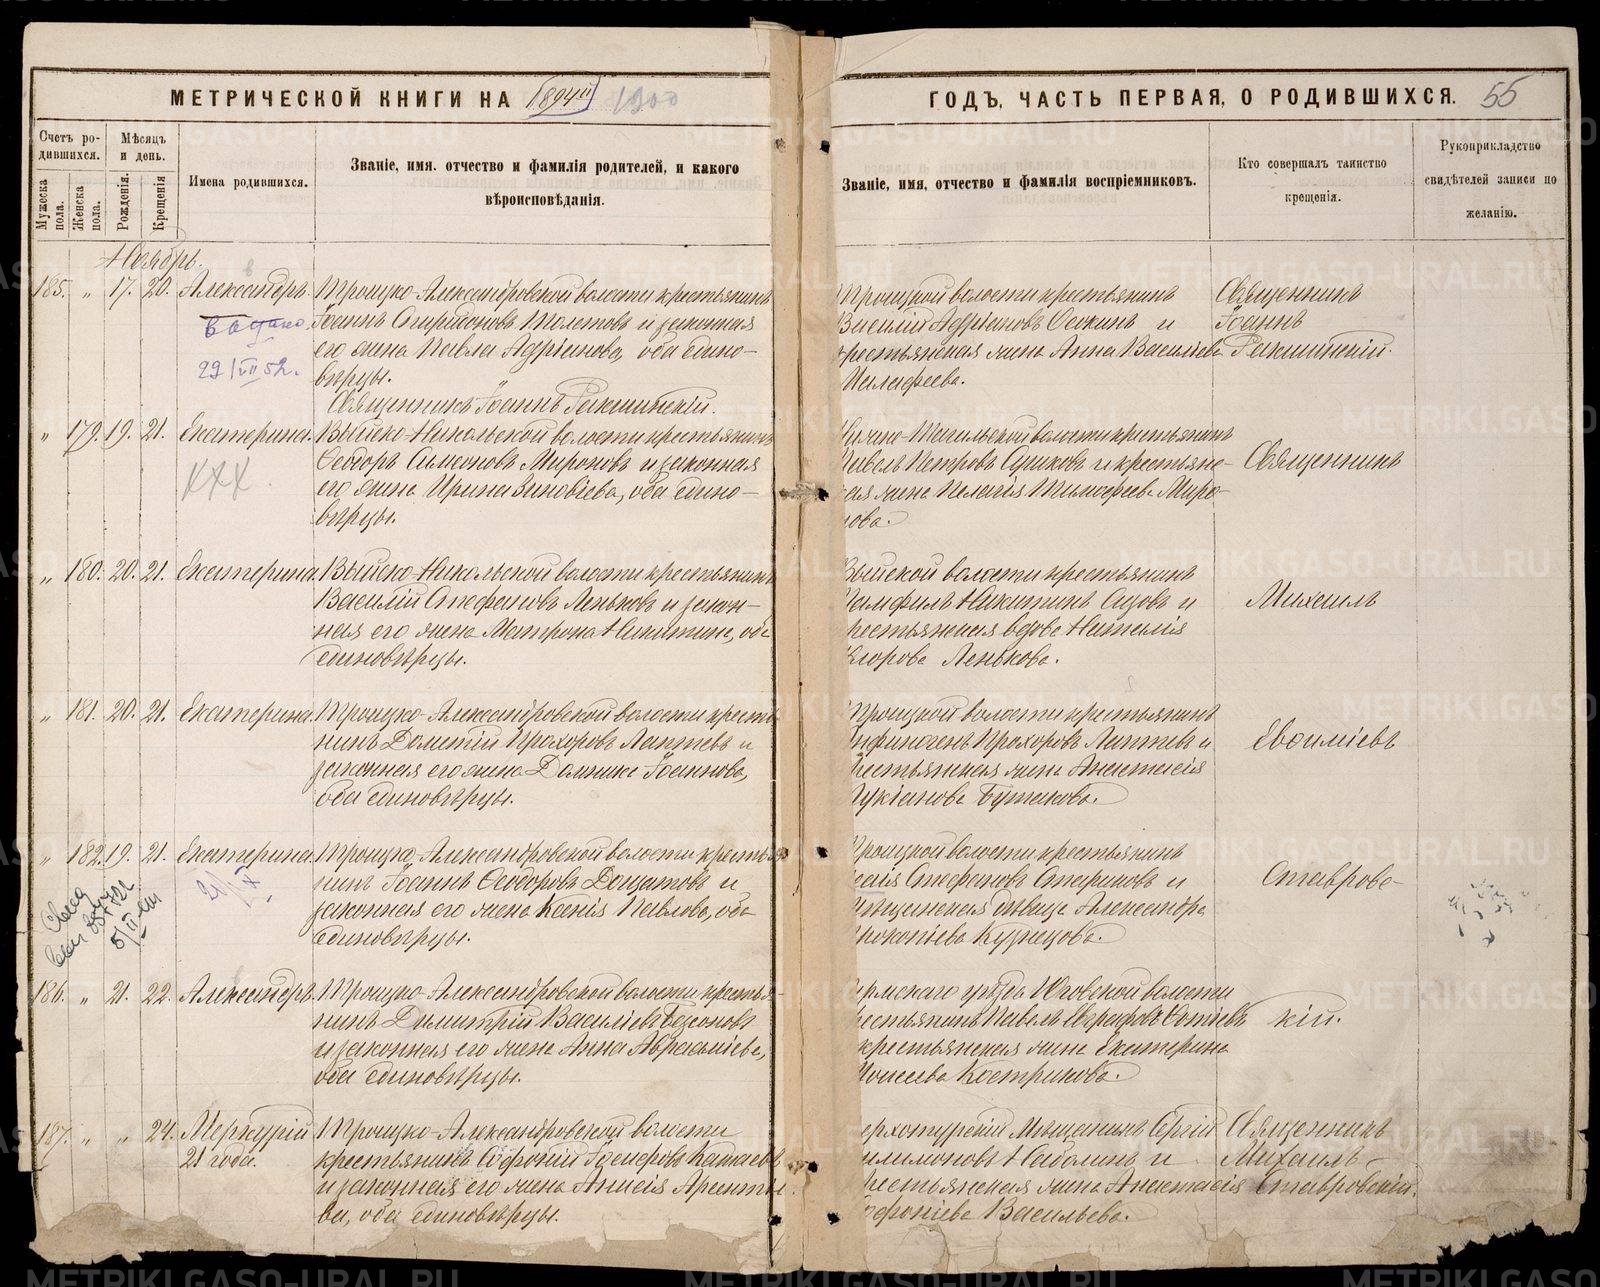 МЕТРИЧЕСКОЙ КНИГИ НА 1894 1900
ГОДЪ, ЧАСТЬ ПЕРВАЯ, О РОДИВШИХСЯ. 55
Счетъ ро-
дившихся.
Мужеска пола.
Женска пола.
Мѣсяцъ
и день.
Рожденія.
Крещенія
Имена родившихся.
Званіе, имя, отчество и фамилія родителей, и какого
вѣроисповѣданія.
Званіе, имя, отчество и фамилія воспріемниковъ.
Кто совершалъ таинство
крещенія.
Рукоприкладство
свидѣтелей записи по
желанію.
Ноябрь.
185. „ 17. 20. Александръ. Троицко-Александровской волости крестьянинъ
Іоаннъ Спиридоновъ Толстовъ и законная
его жена Павла Адріанова, оба едино-
вѣрцы.
Священникъ Іоаннъ Ракшинскій.
29/VII 52.
Троицкой волости крестьянинъ
Василій Адріановъ Оскинъ и
крестьянская жена Анна Василіева
Священникъ
Іоаннъ
Ракшинскій.
„ 179. 19. 21. Екатерина. Выйско-Никольской волости крестьянинъ
Ѳеодоръ Симеоновъ Мироновъ и законная
его жена Ирина Зиновіева, оба едино-
вѣрцы.
XXX.
Нижне-Тагильской волости крестьянинъ
Павелъ Петровъ Сушковъ и крестьян-
ская жена Пелагія Тимофеева Миро-
нова.
Священникъ
„ 180. 20. 21. Екатерина Выйско-Никольской волости крестьянинъ
Василій Стефановъ Леньковъ и закон-
ная его жена Матрона Никитина, оба
единовѣрцы.
Выйской волости крестьянинъ
Памфилъ Никитинъ Сизовъ и
крестьянская вдова Наталія
Егорова Ленькова.
Михаилъ
„ 181. 20. 21. Екатерина. Троицко-Александровской волости кресть-
нинъ Дометій Прохоровъ Лаптевъ и
законная его жена Домника Іоаннова,
оба единовѣрцы.
Троицкой волости крестьянинъ
Анфиногенъ Прохоровъ Лаптевъ и
крестьянская жена Анастасія
Лукіанова Бутакова.
Евѳиміевъ
„ 182. 19. 21. Екатерина. Троицко-Александровской волости кресть-
нинъ Іоаннъ Ѳеодоровъ Дощатовъ и
законная его жена Ксенія Павлова, оба
единовѣрцы.
Троицкой волости крестьянинъ
Стефановъ Стариковъ и
мѣщанская дѣвица Александра
Прокопіева Кузнецова.
Ставровс-
186. „ 21. 22. Александръ. Троицко-Александровской волости крестья-
нинъ Димитрій Василіевъ Безсоновъ
и законная его жена Анна Аврааміева,
оба единовѣрцы.
Пермскаго уѣзда Юговской волости
крестьянинъ Павелъ
крестьянская жена Екатерина
Моисеева Кострикова.
кій.
187. „ „ 24. Меркурій
21 года.
Троицко-Александровской волости
крестьянинъ Софоній Іоакимовъ Катаевъ
и законная его жена Анисія Арсентье-
ва, оба единовѣрцы.
Верхотурскій мѣщанинъ Сергій
Филимоновъ Наболинъ и
крестьянская жена Анастасія
Софоніева Васильева.
Священникъ
Михаилъ
Ставровскій.